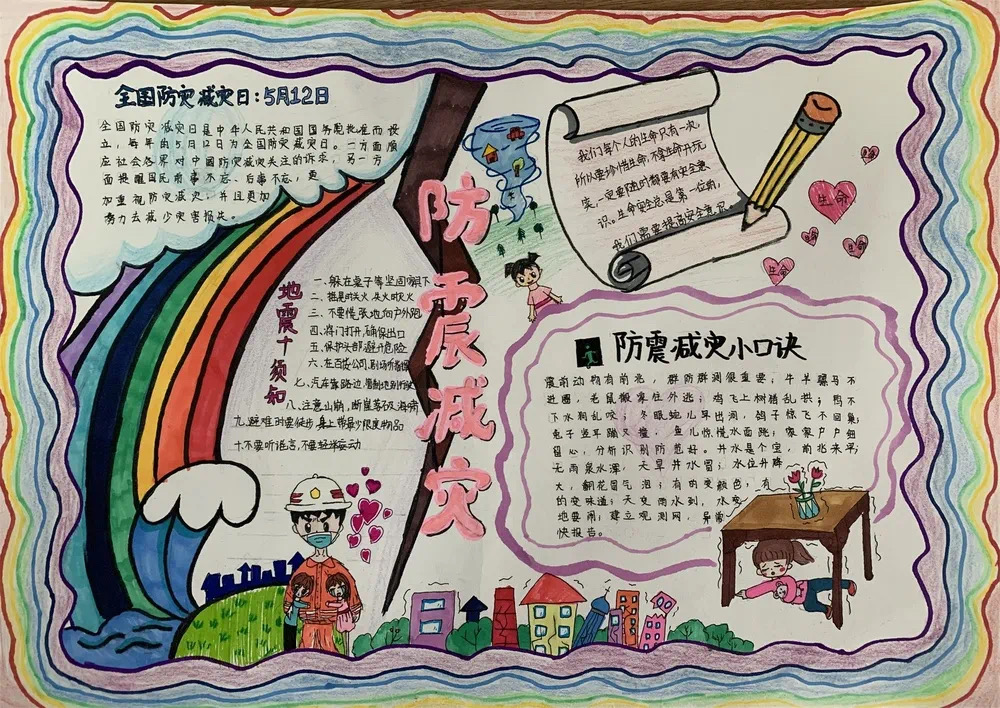 全国防灾减灾日:5月12日
全国防灾减灾日是中华人民共和国国务院批准而设
立,每年的5月12日为全国防灾减灾日。一方面顺
应社会各界对中国防灾减灾关注的诉求,另一方
面提醒国民前事不忘、后事不忘,更
加重视防灾减灾,并且更加
努力去减少灾害损失。
防震减灾
地震十须知
一、躲在桌子等坚固家具下
二、摇晃时关火,失火时灭火
三、不要慌张地向户外跑
四、将门打开,确保出口
五、保护头部避开危险
六、在百货公司,剧场听指挥
七、汽车靠路边,管制区别行驶
八、注意山崩,断崖落石及海啸
九、避难时要徒步,身上带最少限度物品
十、不要听谣言,不要轻举妄动
我们每个人的生命只有一次,
所以要珍惜生命,不拿生命开玩
笑,一定要随时都要有安全意
识。生命安全总是第一位的,
我们需要提高安全意识
生命
生命
生命
生命
生命
防震减灾小口诀
震前动物有前兆,群防群测很重要;牛羊骡马不
进圈,老鼠搬家往外逃;鸡飞上树猪乱拱;鸭不
下水狗乱咬;冬眠蛇儿早出洞,鸽子惊飞不回巢;
兔子竖耳蹦又撞,鱼儿惊慌水面跳;家家户户细
留心,分析识别防范好。井水是个宝,前兆来早;
无雨泉水浑,天旱井水冒;水位升降
大,翻花冒气泡;有的变颜色,有
的变味道;天变雨水到,水变
地要闹;建立观测网,异常
快报告。